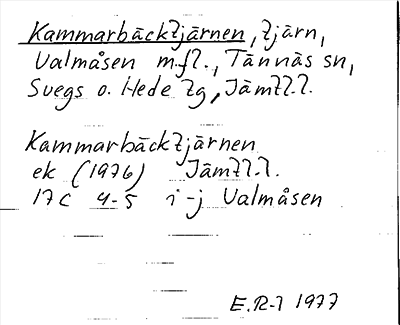 Kammarbäcktjärnen, tjärn,
Valmåsen m.fl., Tännäs sn,
Svegs o. Hede tg, Jämtl.l.
Kammarbäcktjärnen
ek (1976) Jämtl.l.
17C 4-5 i-j Valmåsen
E.R-l 1977